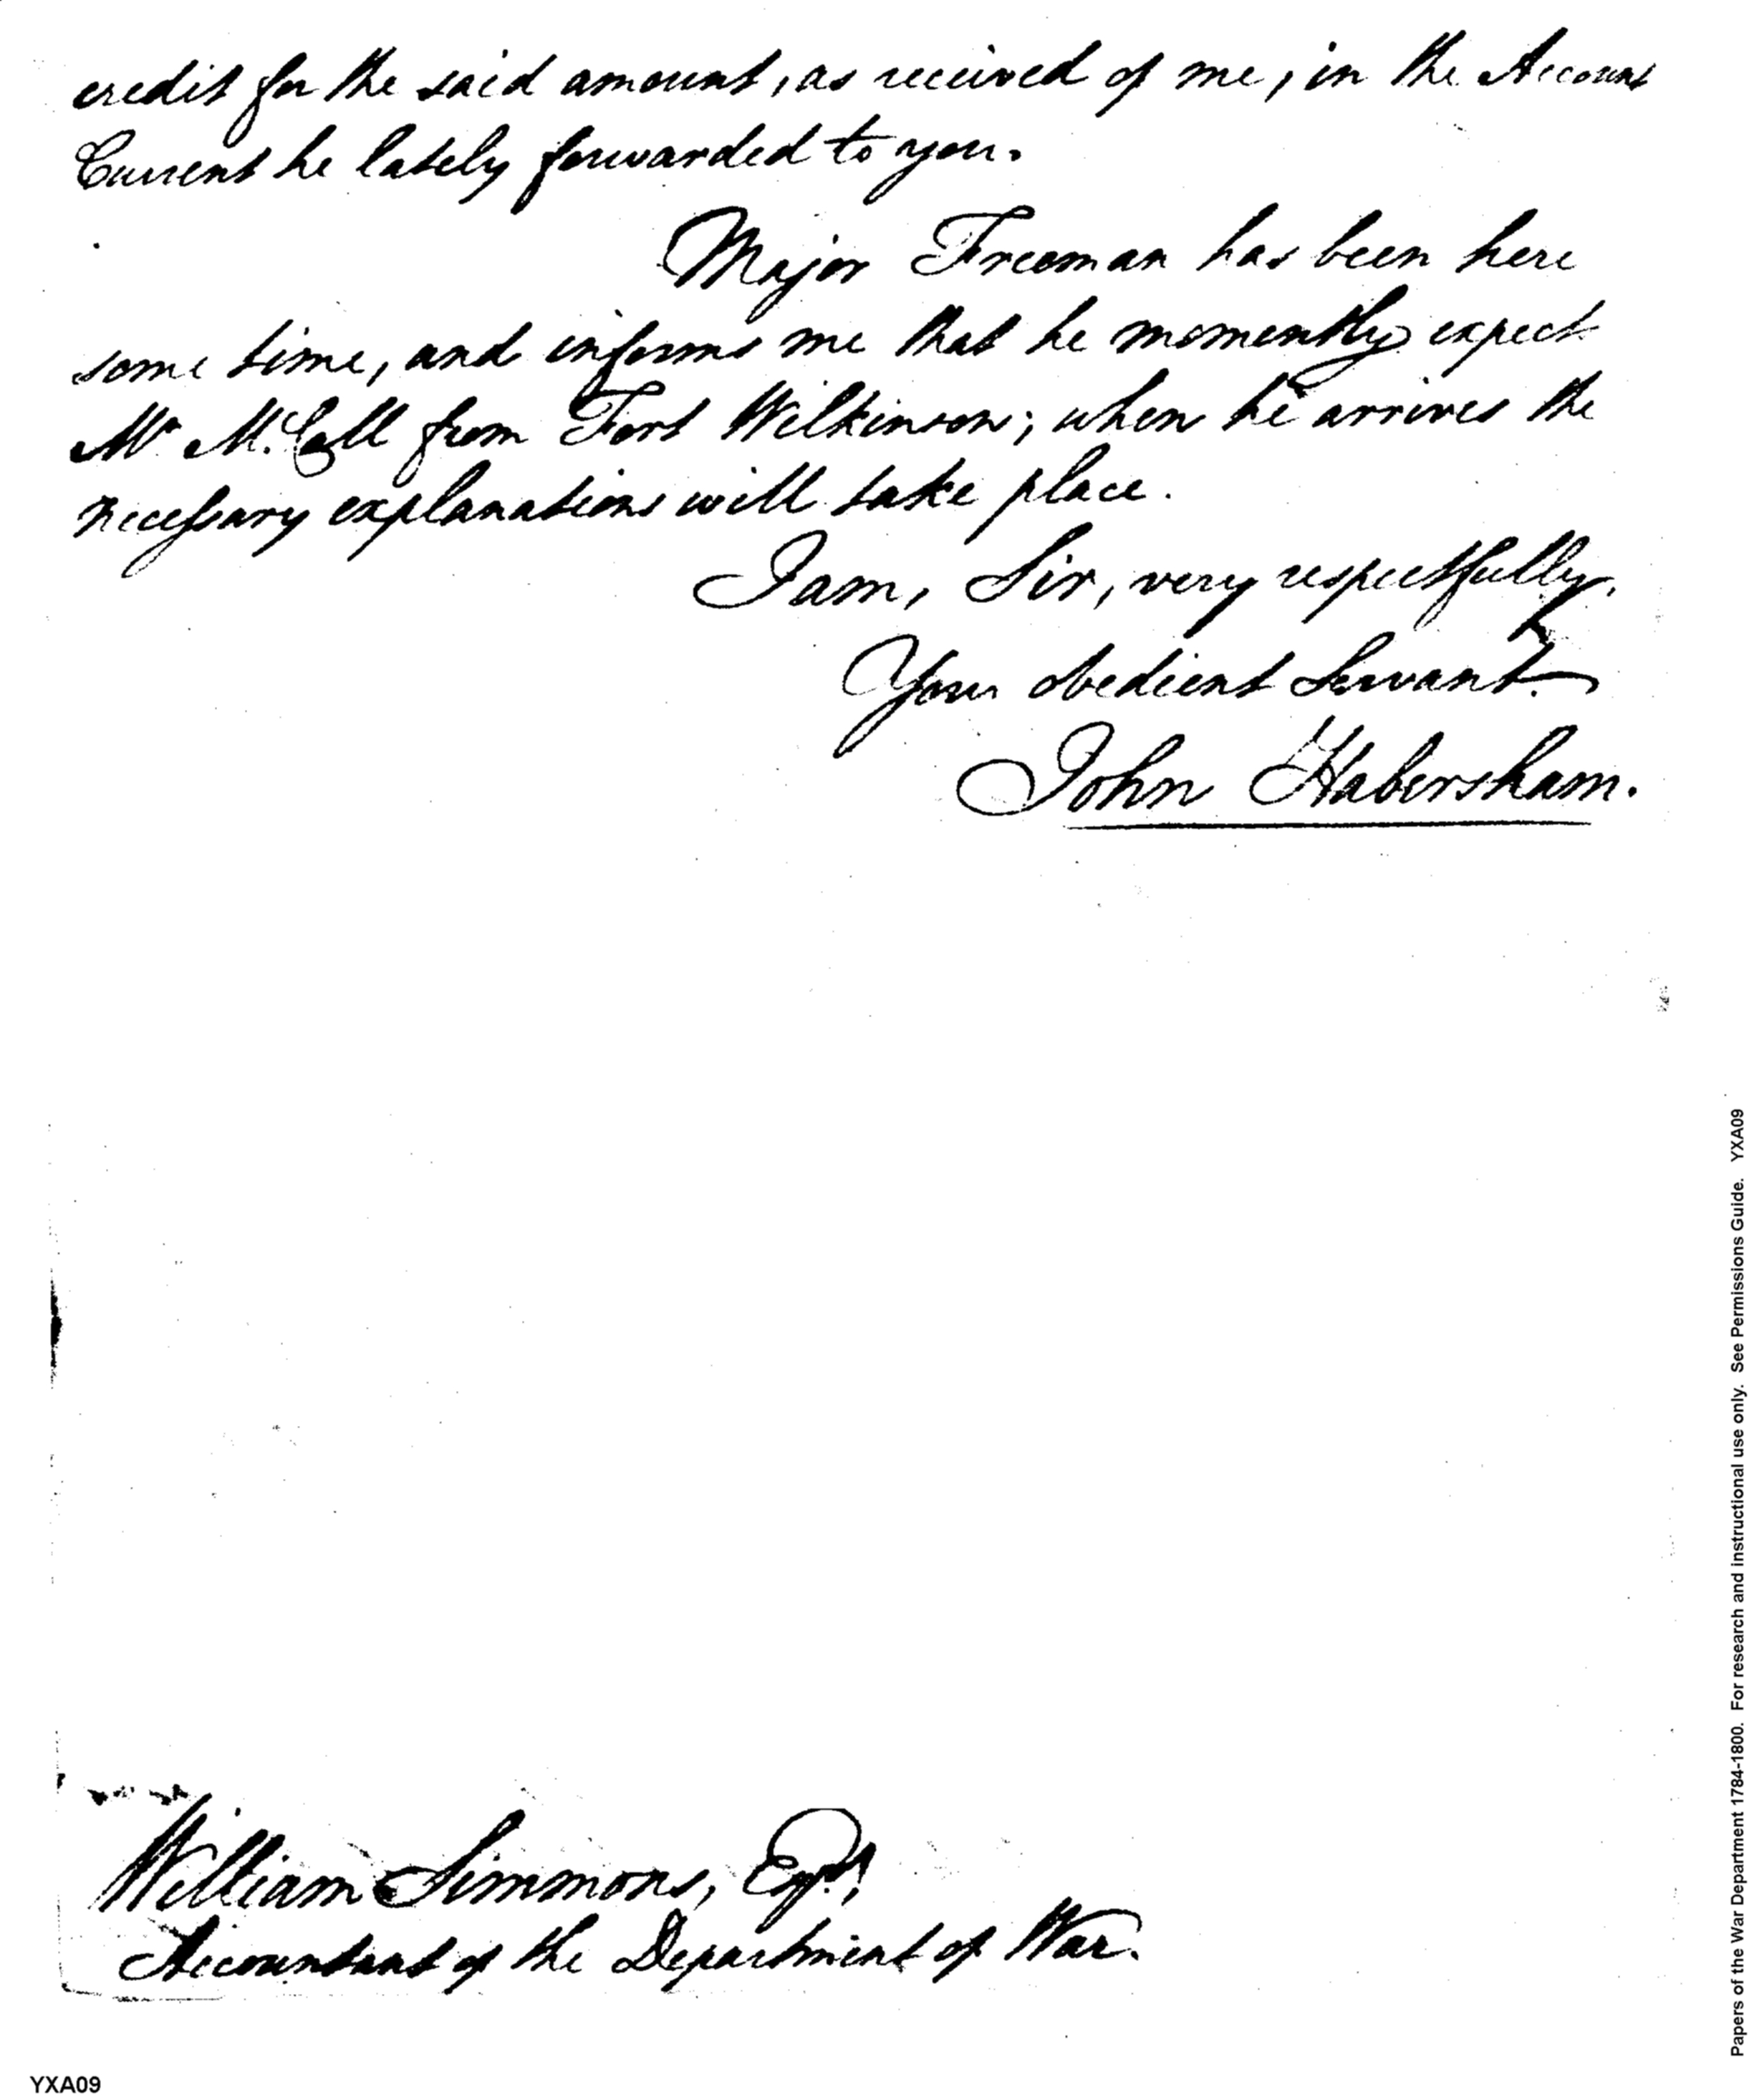 credit for the said amount, as received of me, in the Account
Current he lately forwarded to you.
Major Freeman has been here
some time, and informs me that he momently expects
Mr. McCall from Fort Wilkinson; when he arrives the
necessary explanations will take place.
I am, Sir, very respectfully,
Your obedient Servant.
John Habersham.
William Simmons, Esqr.,
Accountant of the Department of War.
YXA09
Papers of the War Department 1784-1800. For research and instructional use only. See Permissions Guide. YXA09